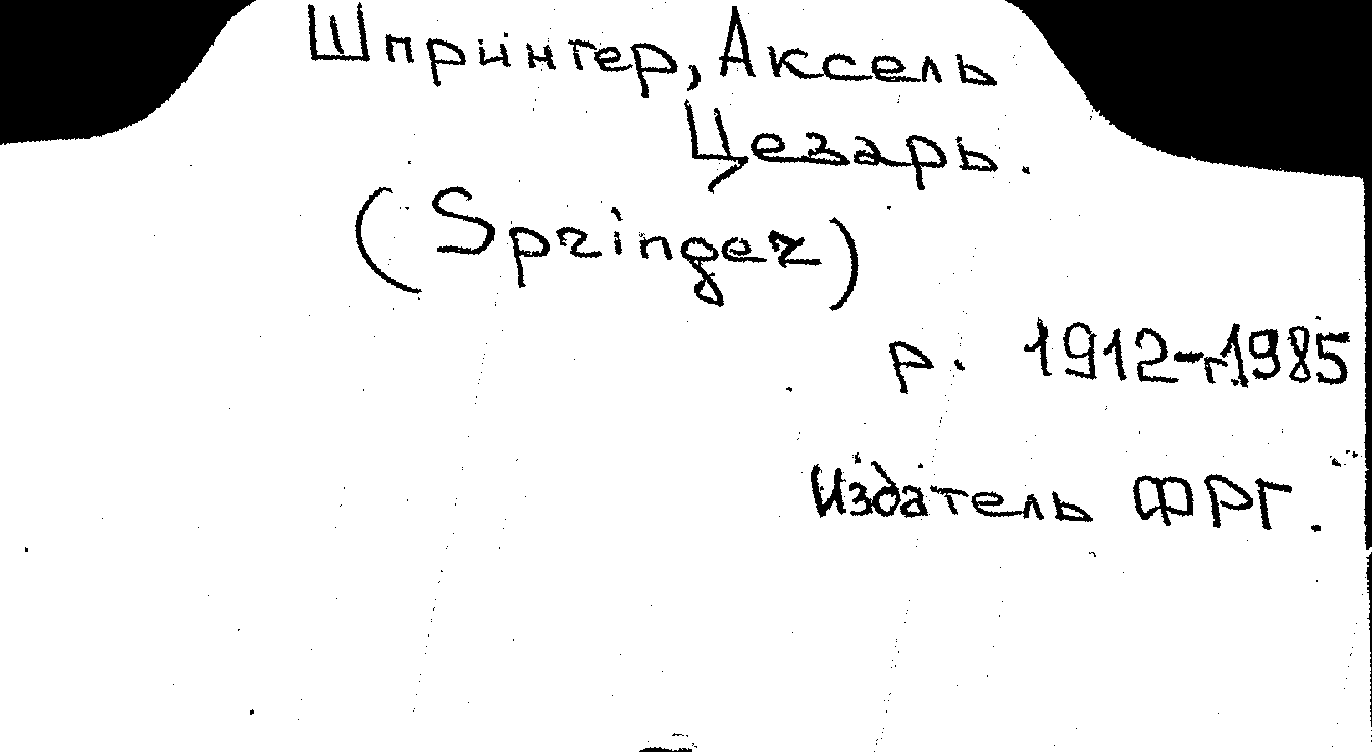 Шпрингер, Аксель
Цезарь.
(Springer)
р. 1912-г.1985
Издатель ФРГ.